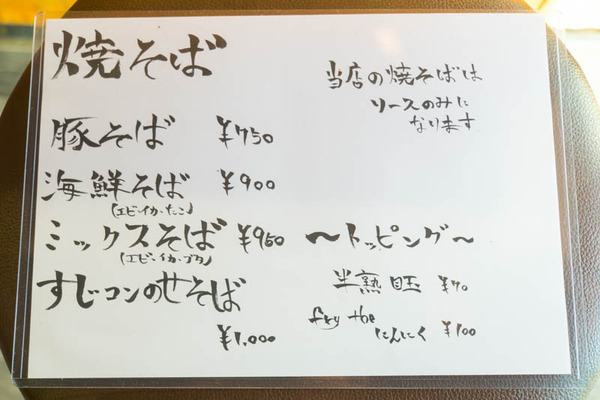 焼そば
当店の焼そばは
ソースのみに
なります
豚そば ¥750
海鮮そば ¥900
(エビ・イカ・たこ)
ミックスそば ¥950
(エビ・イカ・ブタ)
すじコンのせそば
¥1,000
〜トッピング〜
半熟目玉 ¥70
fry the
にんにく ¥100